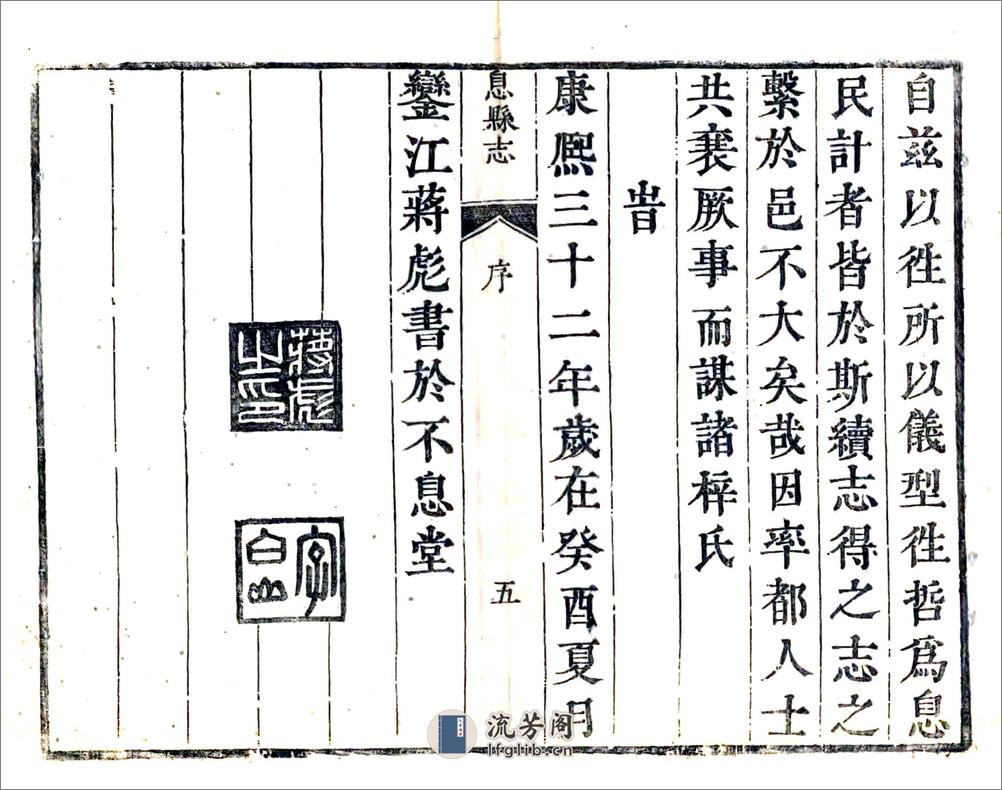 自兹以徃所以儀型徃哲爲息
民計者皆於斯續志得之志之
繫於邑不大矣哉因率都人士
共襄厥事而謀諸梓氏
旹
康熙三十二年歲在癸酉夏月
息縣志
序
五
鑾江蔣彪書於不息堂
蔣彪之印
字白山
流芳阁
lfglib.cn